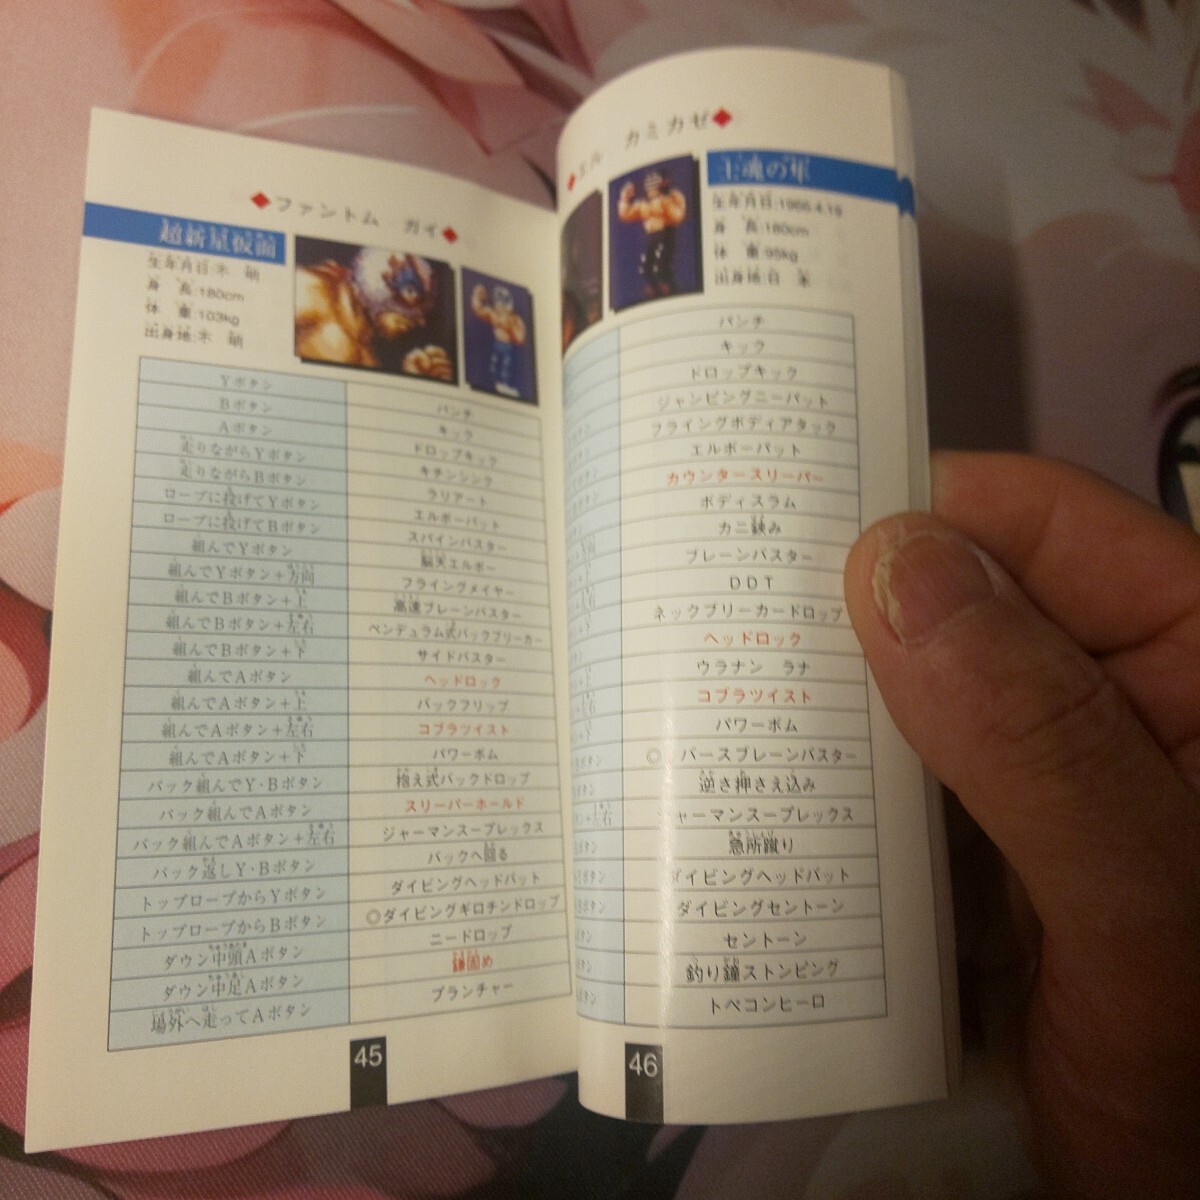 ◆ファントム ガイ◆
超新星仮面
生年月日:不 明
身 長:180cm
体 重:103kg
出身地:不 明
Yボタン パンチ
Bボタン キック
Aボタン ドロップキック
走りながらYボタン キチンシンク
走りながらBボタン ラリアート
ロープに投げてYボタン エルボーパット
ロープに投げてBボタン スパインバスター
組んでYボタン 脳天エルボー
組んでYボタン+方向 フライングメイヤー
組んでBボタン+上 高速ブレーンバスター
組んでBボタン+左右 ペンデュラム式バックブリーカー
組んでBボタン+下 サイドバスター
組んでAボタン ヘッドロック
組んでAボタン+上 バックフリップ
組んでAボタン+左右 コブラツイスト
組んでAボタン+下 パワーボム
バック組んでY・Bボタン 抱え式バックドロップ
バック組んでAボタン スリーパーホールド
バック組んでAボタン+左右 ジャーマンスープレックス
バック返しY・Bボタン バックへ回る
トップロープからYボタン ダイビングヘッドバット
トップロープからBボタン ◎ダイビングギロチンドロップ
ダウン中頭Aボタン ニードロップ
ダウン中足Aボタン 鎌固め
場外へ走ってAボタン プランチャー
45
◆エル カミカゼ◆
士魂の隼
生年月日:1966.4.19
身 長:180cm
体 重:95kg
出身地:日 本
パンチ
キック
ドロップキック
ジャンピングニーパット
フライングボディアタック
エルボーパット
カウンタースリーパー
ボディスラム
カニ鋏み
ブレーンバスター
DDT
ネックブリーカードロップ
ヘッドロック
ウラナン ラナ
コブラツイスト
パワーボム
◎ バースブレーンバスター
逆さ押さえ込み
ャーマンスープレックス
急所蹴り
ダイビングヘッドバット
ダイビングセントーン
セントーン
釣り鐘ストンピング
トペコンヒーロ
46